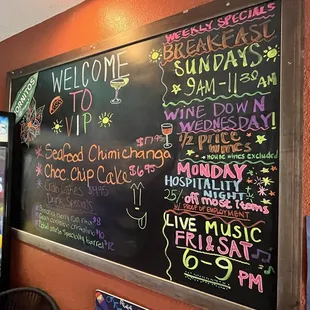 WELCOME
TO
VIP
Seafood Chimichanga $17.95
Choc. Chip Cake $6.95
Crab Cakes $14.95
Drink Specials
WEEKLY SPECIALS
BREAKFAST
SUNDAYS
9AM-11:30AM
WINE DOWN
WEDNESDAY!
1/2 PRICE
WINES
House wines excluded
MONDAY
HOSPITALITY
NIGHT
25% off most items
w/ PROOF OF EMPLOYMENT
LIVE MUSIC
FRI & SAT
6-9 PM